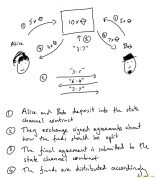 ① 5x⊕
10x⊕
① 5x⊕
Alice
④ 3x⊕
③ ↑
"3:7"
④ 7x⊕
Bob
"5:5"
②
"3:7"
① Alice and Bob deposit into the state
channel contract
② They exchange signed agreements about
how the funds should be split
③ The final agreement is submitted to the
state channel contract
④ The funds are distributed accordingly